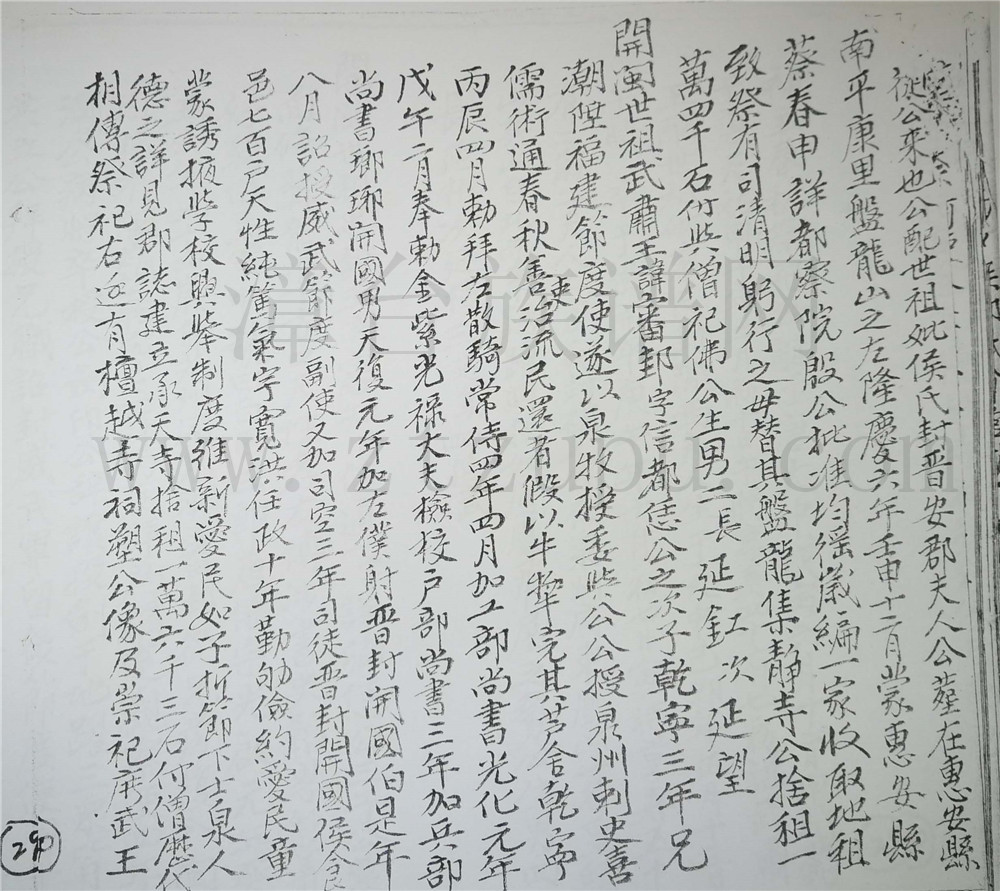 從公來也公配世祖妣侯氏封晋安郡夫人公葬在惠安縣
南平康里盤龍山之左隆慶六年壬申十二月蒙惠安縣
蔡春申詳都察院殷公批准均徭歲編一家收取地租
致祭有司清明躬行之毋替其盤龍集靜寺公捨租一
萬四千石付與僧祀佛公生男二長延釭次延望
開閩世祖武肅王諱審邽字信都恁公之次子乾寧三年兄
潮陞福建節度使遂以泉牧授委與公公授泉州刺史喜
儒術通春秋善使治流民還者假以牛犂完其芦舍乾寧
丙辰四月勅拜左散騎常侍四年四月加工部尚書光化元年
戊午二月奉勅金紫光祿大夫檢校戸部尚書三年加兵部
尚書瑯琊開國男天復元年加左僕射晋封開國伯是年
八月詔授威武節度副使又加司空三年司徒晋封開國侯食
邑七百戸天性純篤氣宇寬洪任政十年勤劬儉約愛民童
蒙誘掖学校興舉制度維新愛民如子折節下士泉人
德之詳見郡誌建立承天寺捨租一萬六千三石付僧歷代
相傳祭祀右邊有檀越寺祠塑公像及崇祀唐武王
290
漳台族谱网
www.ztzupu.com